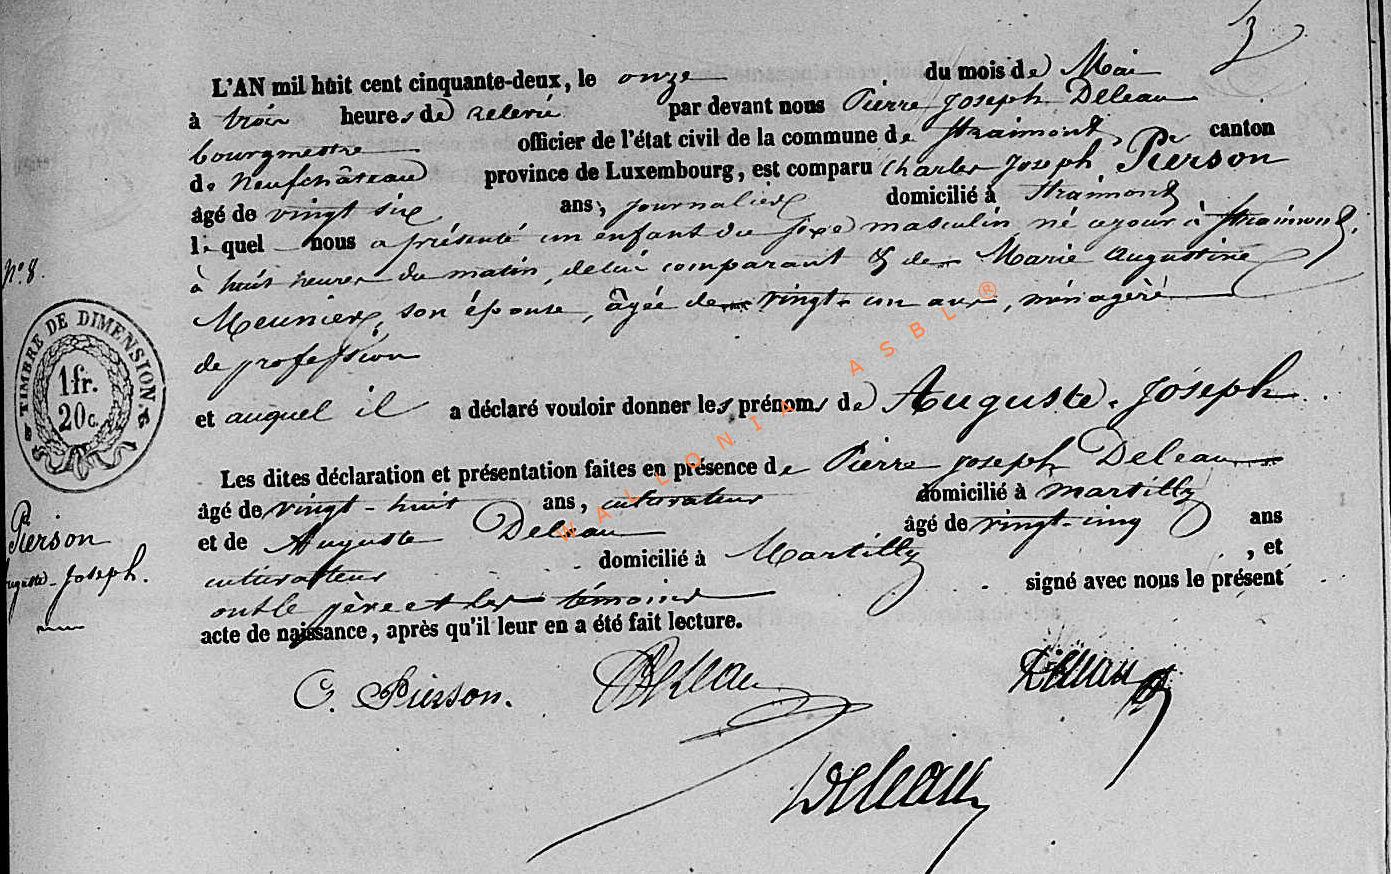 3
L'AN mil huit cent cinquante-deux, le onze du mois de Mai
à trois heures de relevé par devant nous Pierre Joseph Deleau
bourgmestre officier de l'état civil de la commune de Straimont canton
de Neufchâteau province de Luxembourg, est comparu Charles Joseph Pierson
âgé de vingt six ans, journalier domicilié à Straimont
lequel nous a présenté un enfant du sexe masculin, né ce jour à Straimont,
à huit heures du matin, de lui comparant & de Marie Augustine
Meunier, son épouse, âgée de vingt-un ans, ménagère
de profession
et auquel il a déclaré vouloir donner les prénoms de Auguste-Joseph
Les dites déclaration et présentation faites en présence de Pierre Joseph Deleau
âgé de vingt-huit ans, cultivateur domicilié à Martilly
et de Auguste Deleau âgé de vingt-cinq ans
cultivateur domicilié à Martilly, et
ont le père et les témoins signé avec nous le présent
acte de naissance, après qu'il leur en a été fait lecture.
C. Pierson. Deleau Deleau
Deleau
N° 8.
TIMBRE DE DIMENSION
1 fr.
20 c.
Pierson
Auguste-Joseph.
WALLONIA ASBL ®